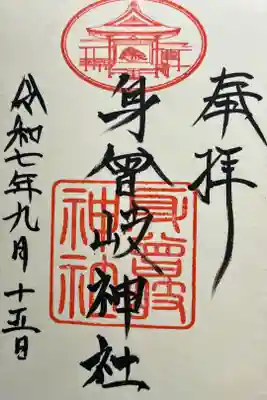 奉拝
身曾岐神社
身曾岐神社
令和七年九月十五日